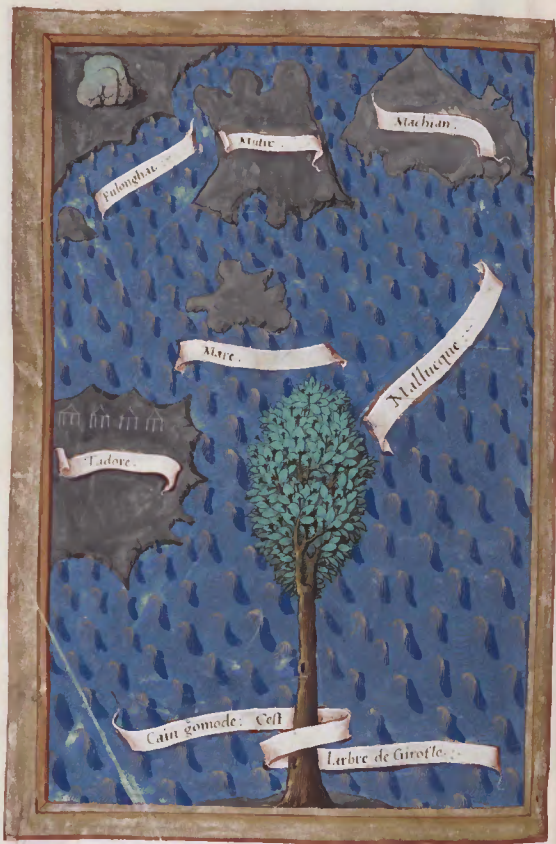 Pulonghat.
Mutir.
Machian.
Mare.
Mallucque.
Tadore.
Cain gōmode: Cest
Larbre de Girofle.